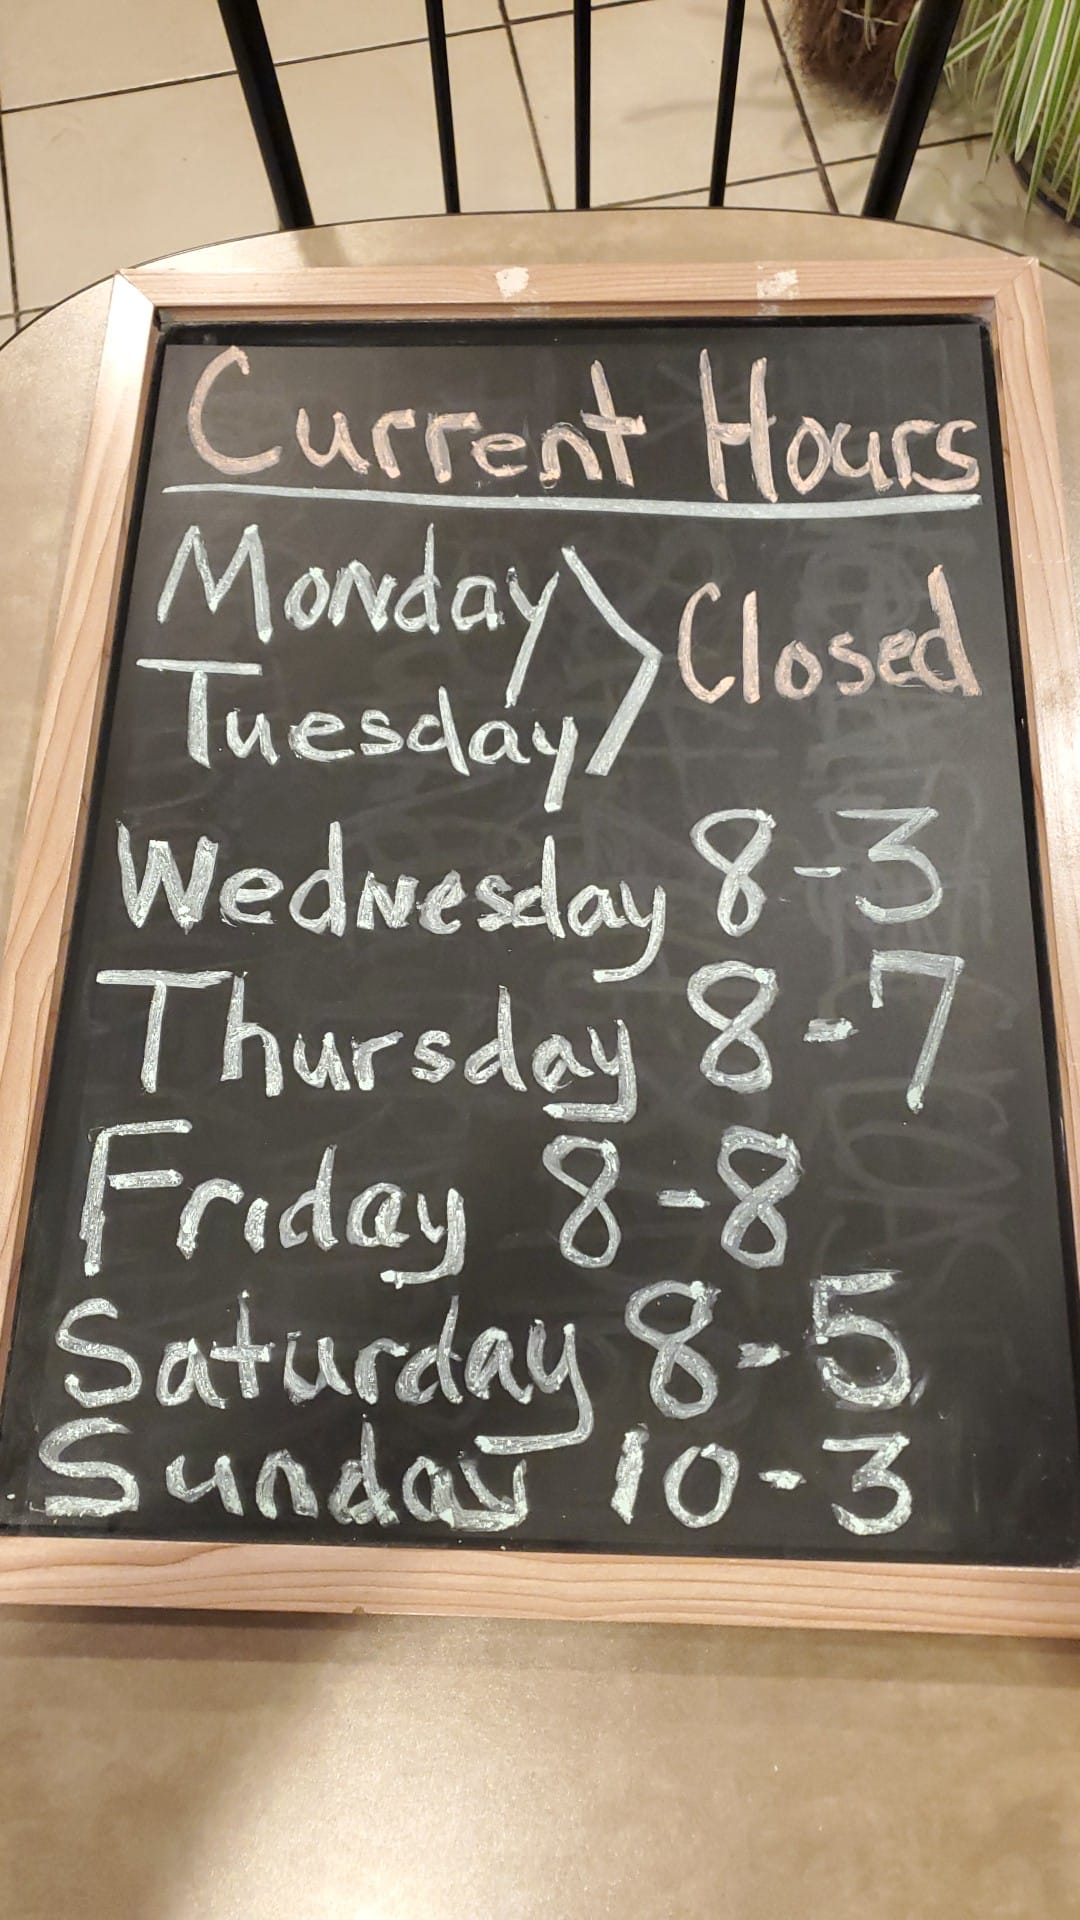 Current Hours
Monday
Closed
Tuesday
Wednesday 8-3
Thursday 8-7
Friday 8-8
Saturday 8-5
Sunday 10-3